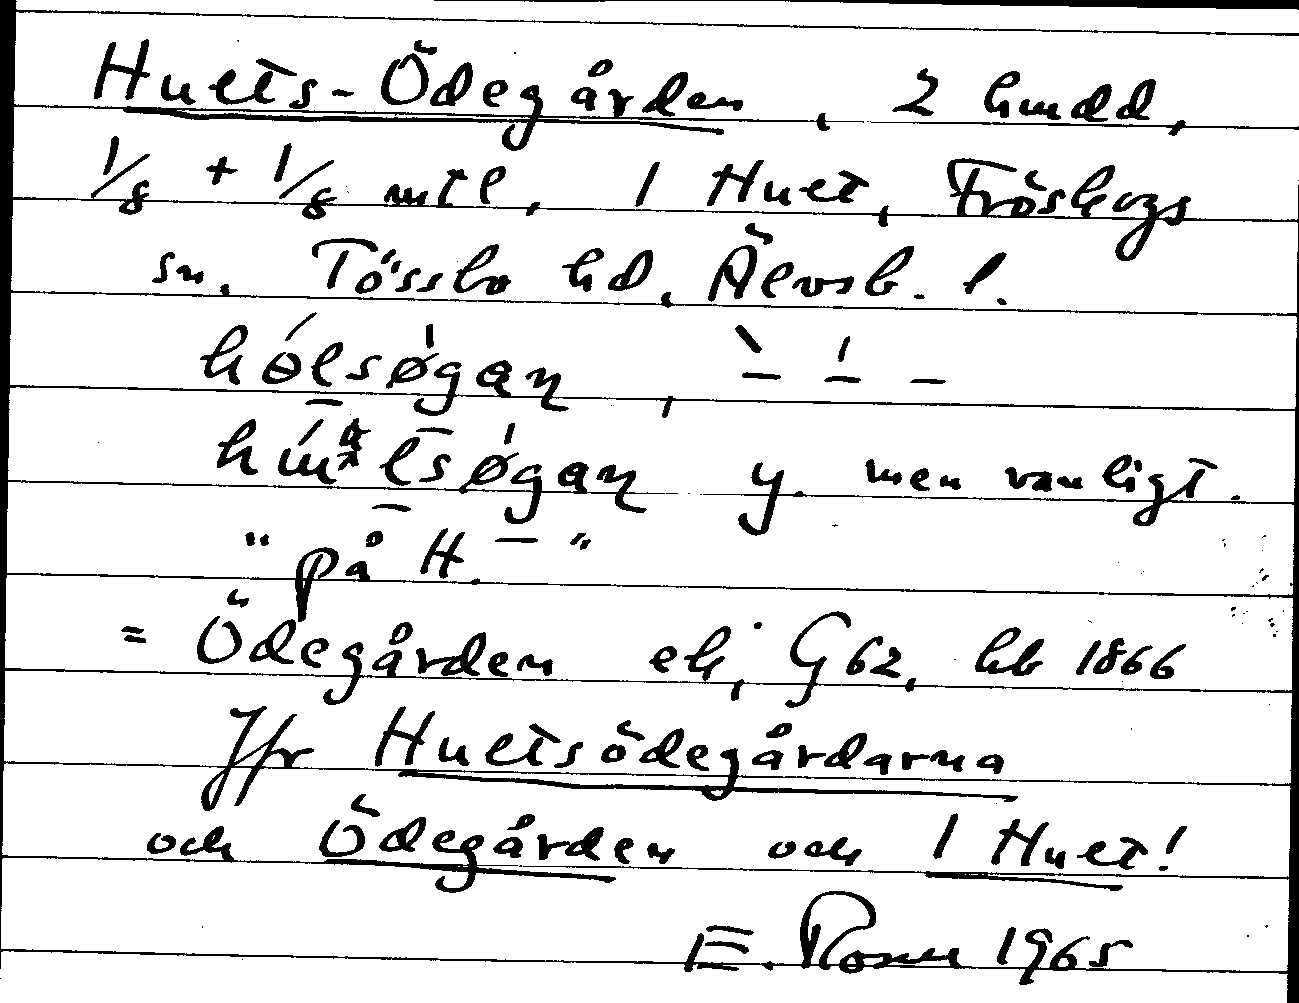 Hults-Ödegården, 2 hmdd,
1/8 + 1/8 mtl, 1 Hult, Fröskogs
sn. Tössbo hd, Älvsb. l.
hólsøgaɳ,
y. men vanligt.
"på H. — "
= Ödegården ek, G62, hb 1866
Jfr Hultsödegårdarna
och Ödegården och 1 Hult!
E. Rosell 1965